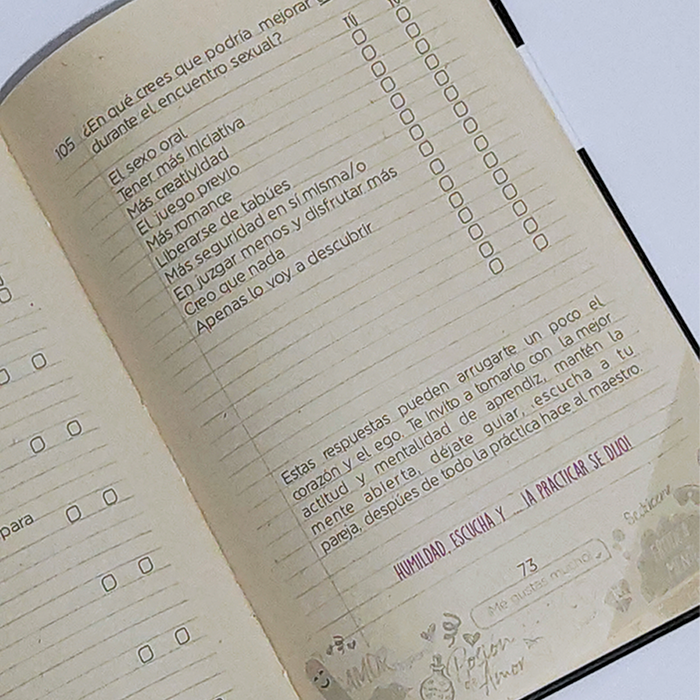 105 ¿En qué crees que podría mejorar
durante el encuentro sexual?
Tú
El sexo oral
Tener más iniciativa
Más creatividad
El juego previo
Más romance
Liberarse de tabúes
Más seguridad en sí misma/o
En juzgar menos y disfrutar más
Creo que nada
Apenas lo voy a descubrir
Estas respuestas pueden arrugarte un poco el
corazón y el ego. Te invito a tomarlo con la mejor
actitud y mentalidad de aprendiz, mantén la
mente abierta, déjate guiar, escucha a tu
pareja, despúes de todo la práctica hace al maestro.
HUMILDAD, ESCUCHA Y ... ¡A PRACTICAR SE DIJO!
73
¡Me gustas mucho!
AMOR
Poción
de Amor
para